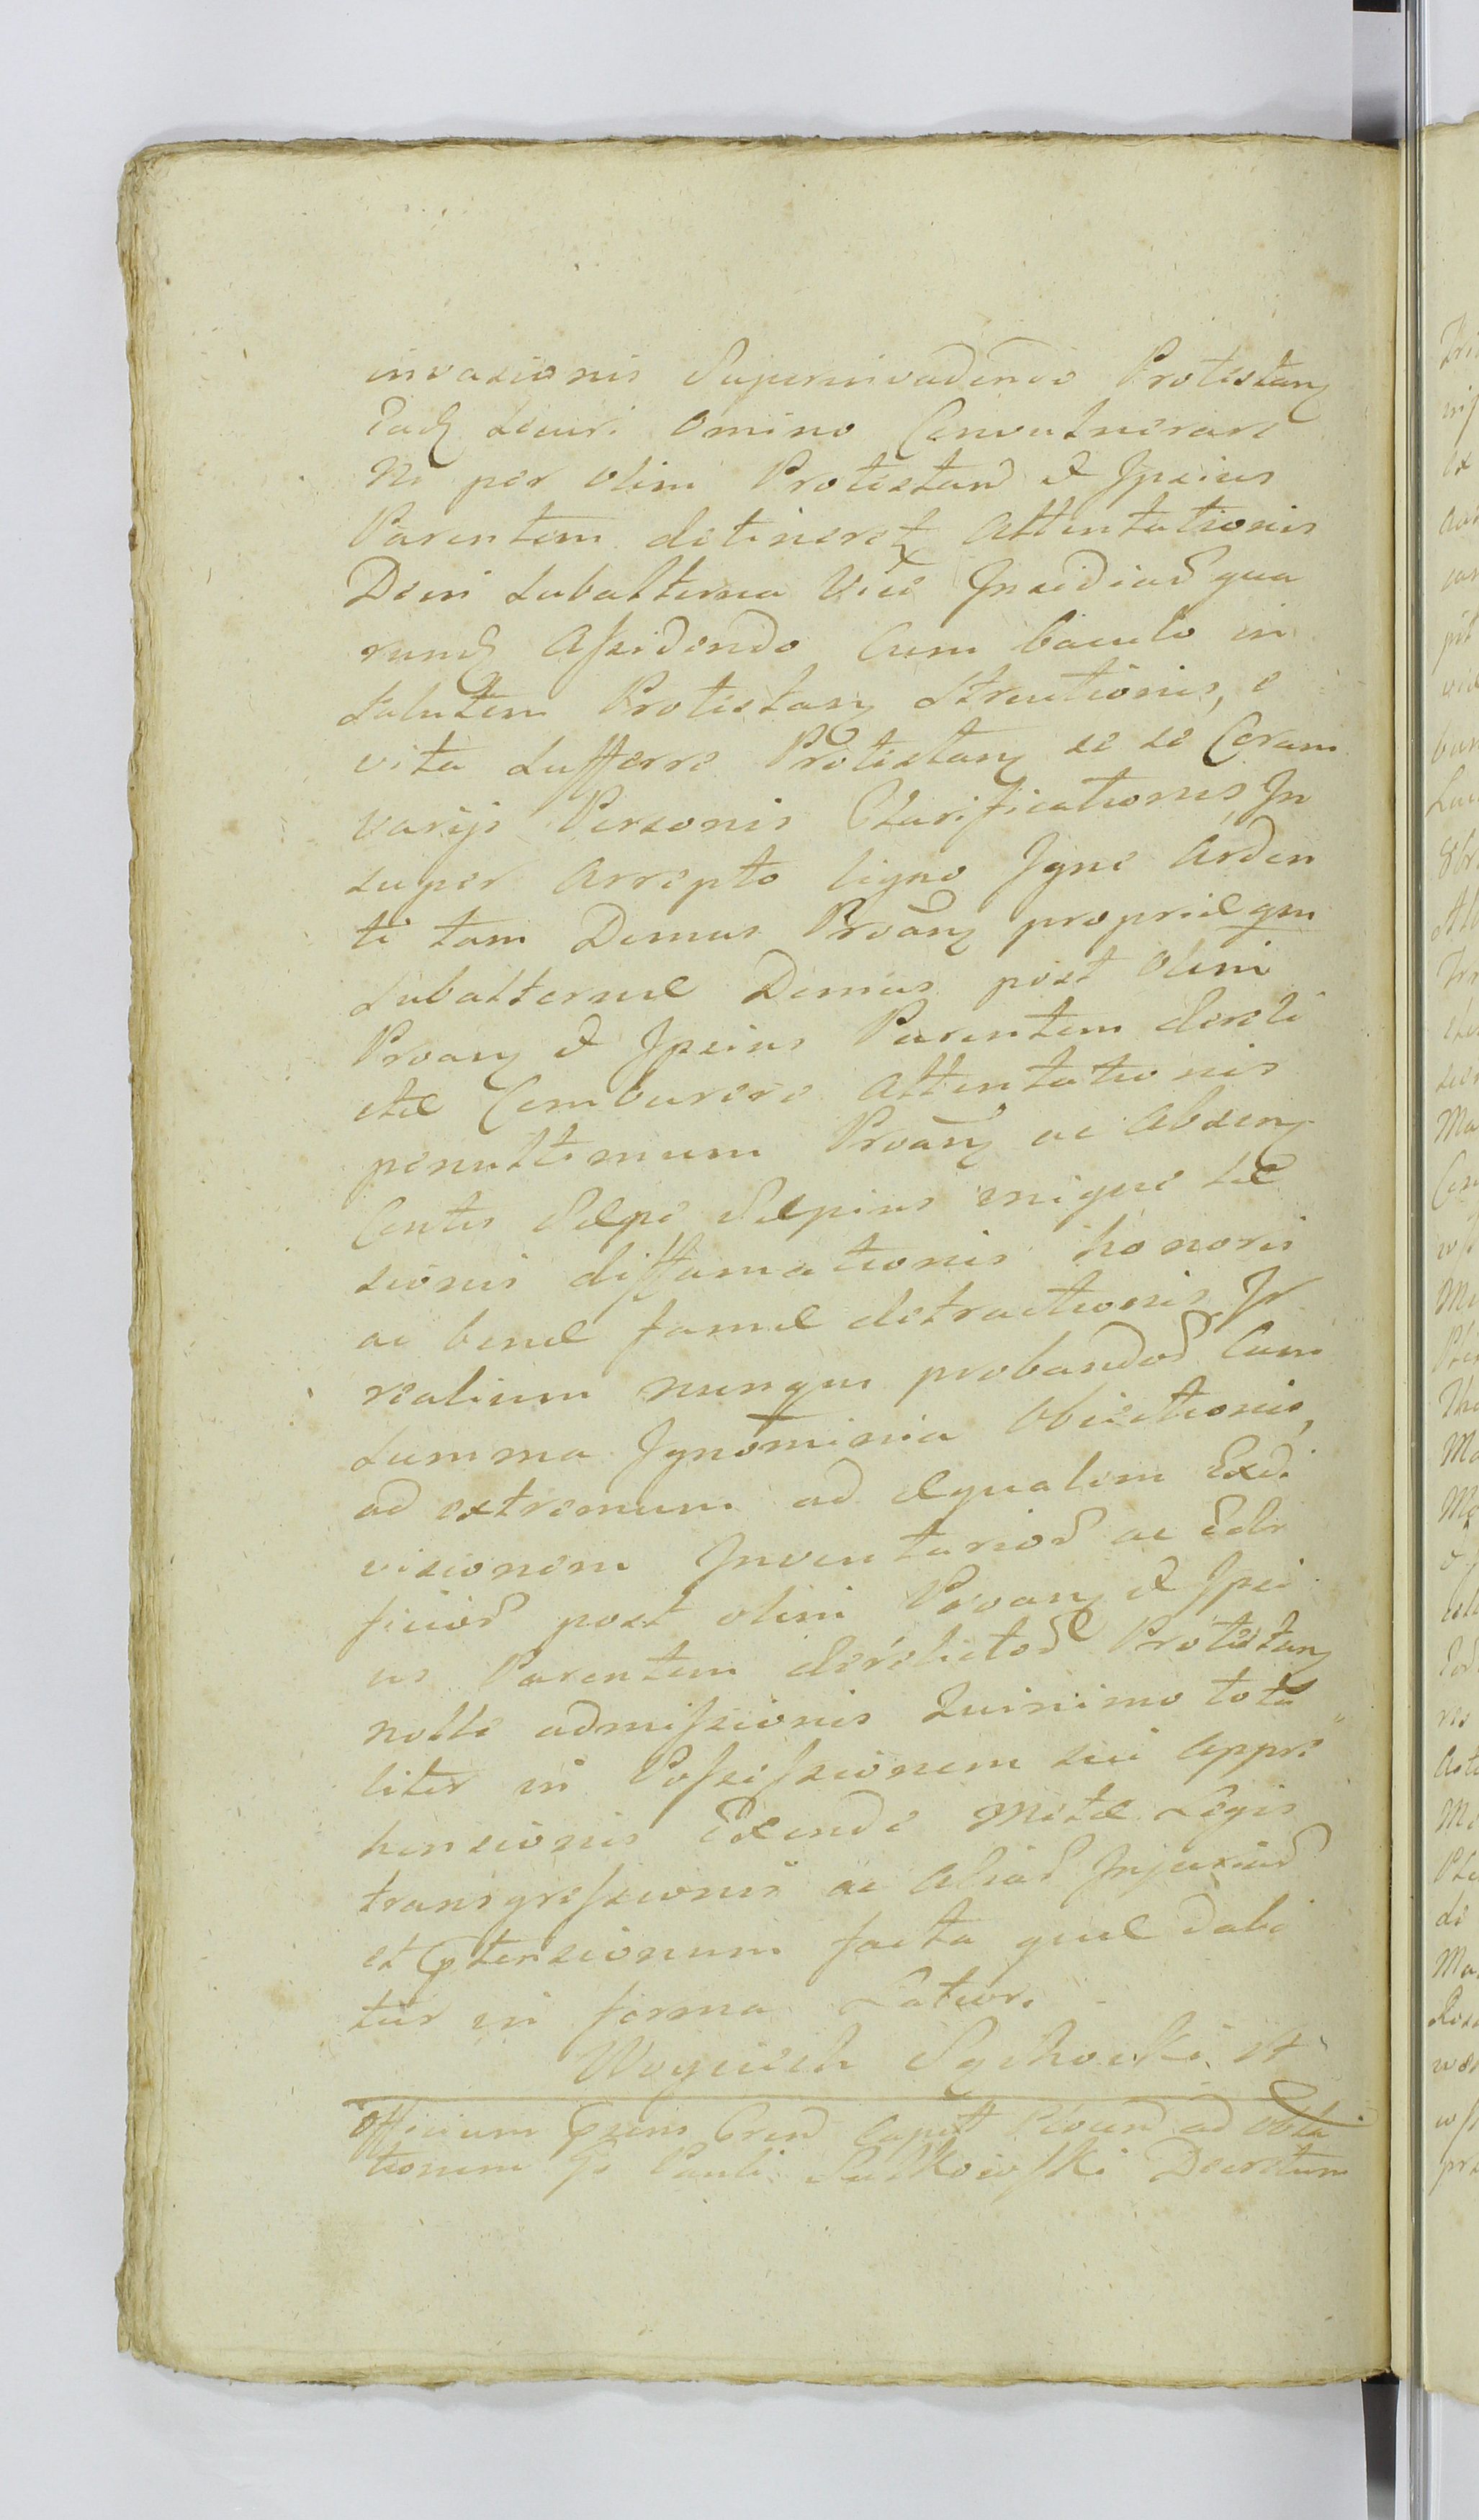 invasionis Superinvadendo Protestan
Eadq securi omino Convulnerare
Ni per olim Protestand & Ipsius
Parentem detineretq Attentationis
Dein subalterna Vice Insidiar qua
rundq Assidendo Cum baculo in
Salutem Protestanq Structionis, e
vita Sufferre Protestanq se se Coram
varijs Personis Clarificationis, In
super arrepto ligno Igne arden
ti tam Domus Proanq propriæ qm
Subalternæ Domus post olim
Proanq & Ipsius Parentem dereli
ctæ Comburere Attentationis
penultimum Proanq ac absenq
Contis Sæpe Sæpius inique læ
sionis diffamationis honoris
ac benæ famæ detractionis Ir
realium nunqm probandor Cum
Summa Ignominia Obiectionis,
ad extremum ad æqualem Exdi
visionem Inventarior ac Edi
ficior post olim Proanq & Ipsi
us Parentem derelictor Protestanq
nolle admissionis Quinimo tota
liter in Possessionem sui Appre
hensionis Exinde Metæ Legis
transgressionis ac Aliar Injuriar
et Ptensionum facta quæ dabi
tur in forma Latior.
Woyciech Sychocki
Officium Psens Crend Capitt Plocend ad Obla
tionem Pauli Sulkowski Decretum